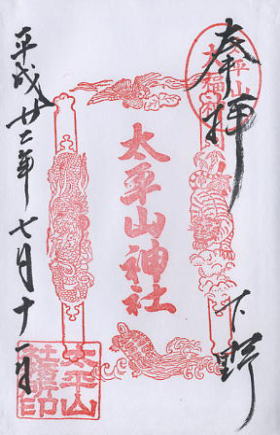 奉拝
下野
太平山神社
平成廿二年七月十一日
太平山
神社印